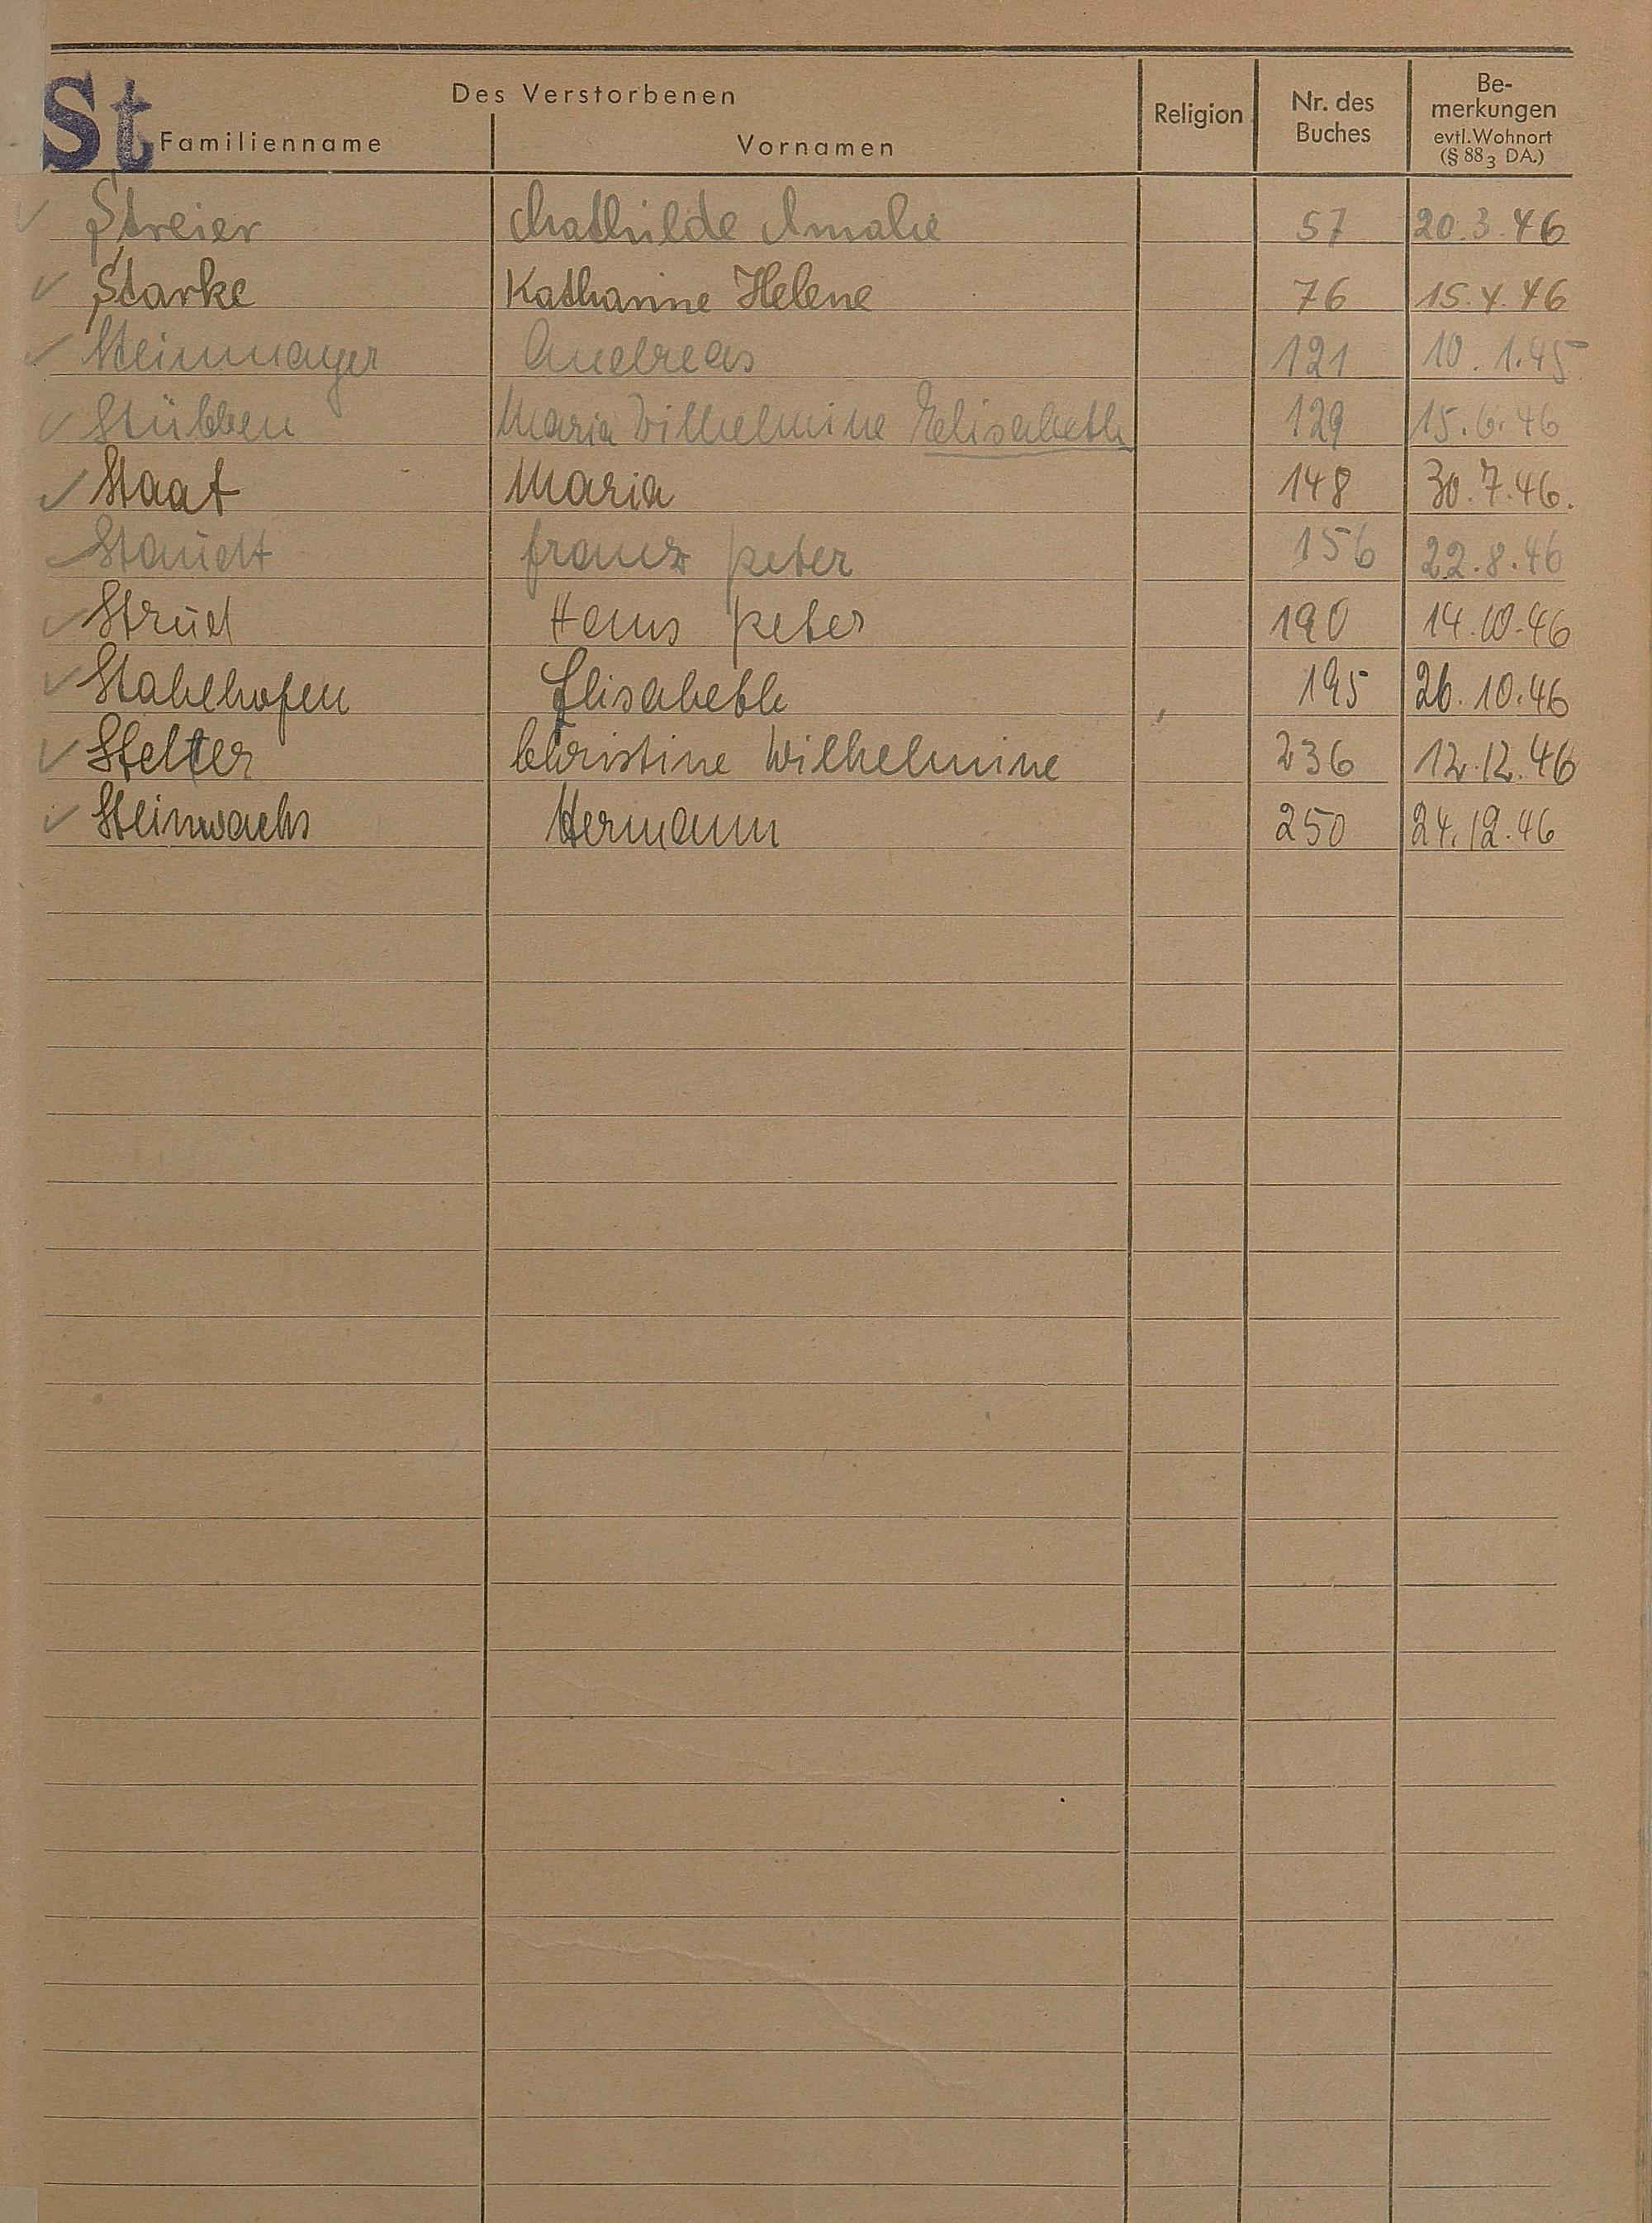 St
Des Verstorbenen
Familienname Vornamen Religion Nr. des Buches Be-merkungen evtl. Wohnort (§ 88 3 DA.)
✓ Streier Mathilde Amalie 57 20.3.46
✓ Starke Katharine Helene 76 15.4.46
✓ Steinmayer Andreas 121 10.1.45
✓ Stübben Maria Wilhelmine Elisabeth 129 15.6.46
✓ Staat Maria 148 30.7.46.
✓ Staudt Franz Peter 156 22.8.46
✓ Strud Hans Peter 190 14.10.46
✓ Stahlhofen Elisabeth 195 26.10.46
✓ Stelter Christine Wilhelmine 236 12.12.46
✓ Steinwachs Hermann 250 24.12.46